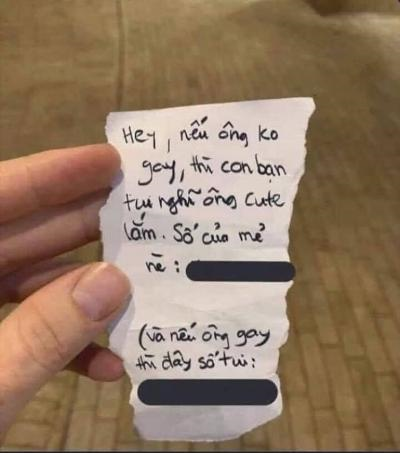 Hey, nếu ông ko
gay, thì con bạn
tui nghĩ ông cute
lắm. Số của mẻ
nè:
(và nếu ông gay
thì đây số tui: